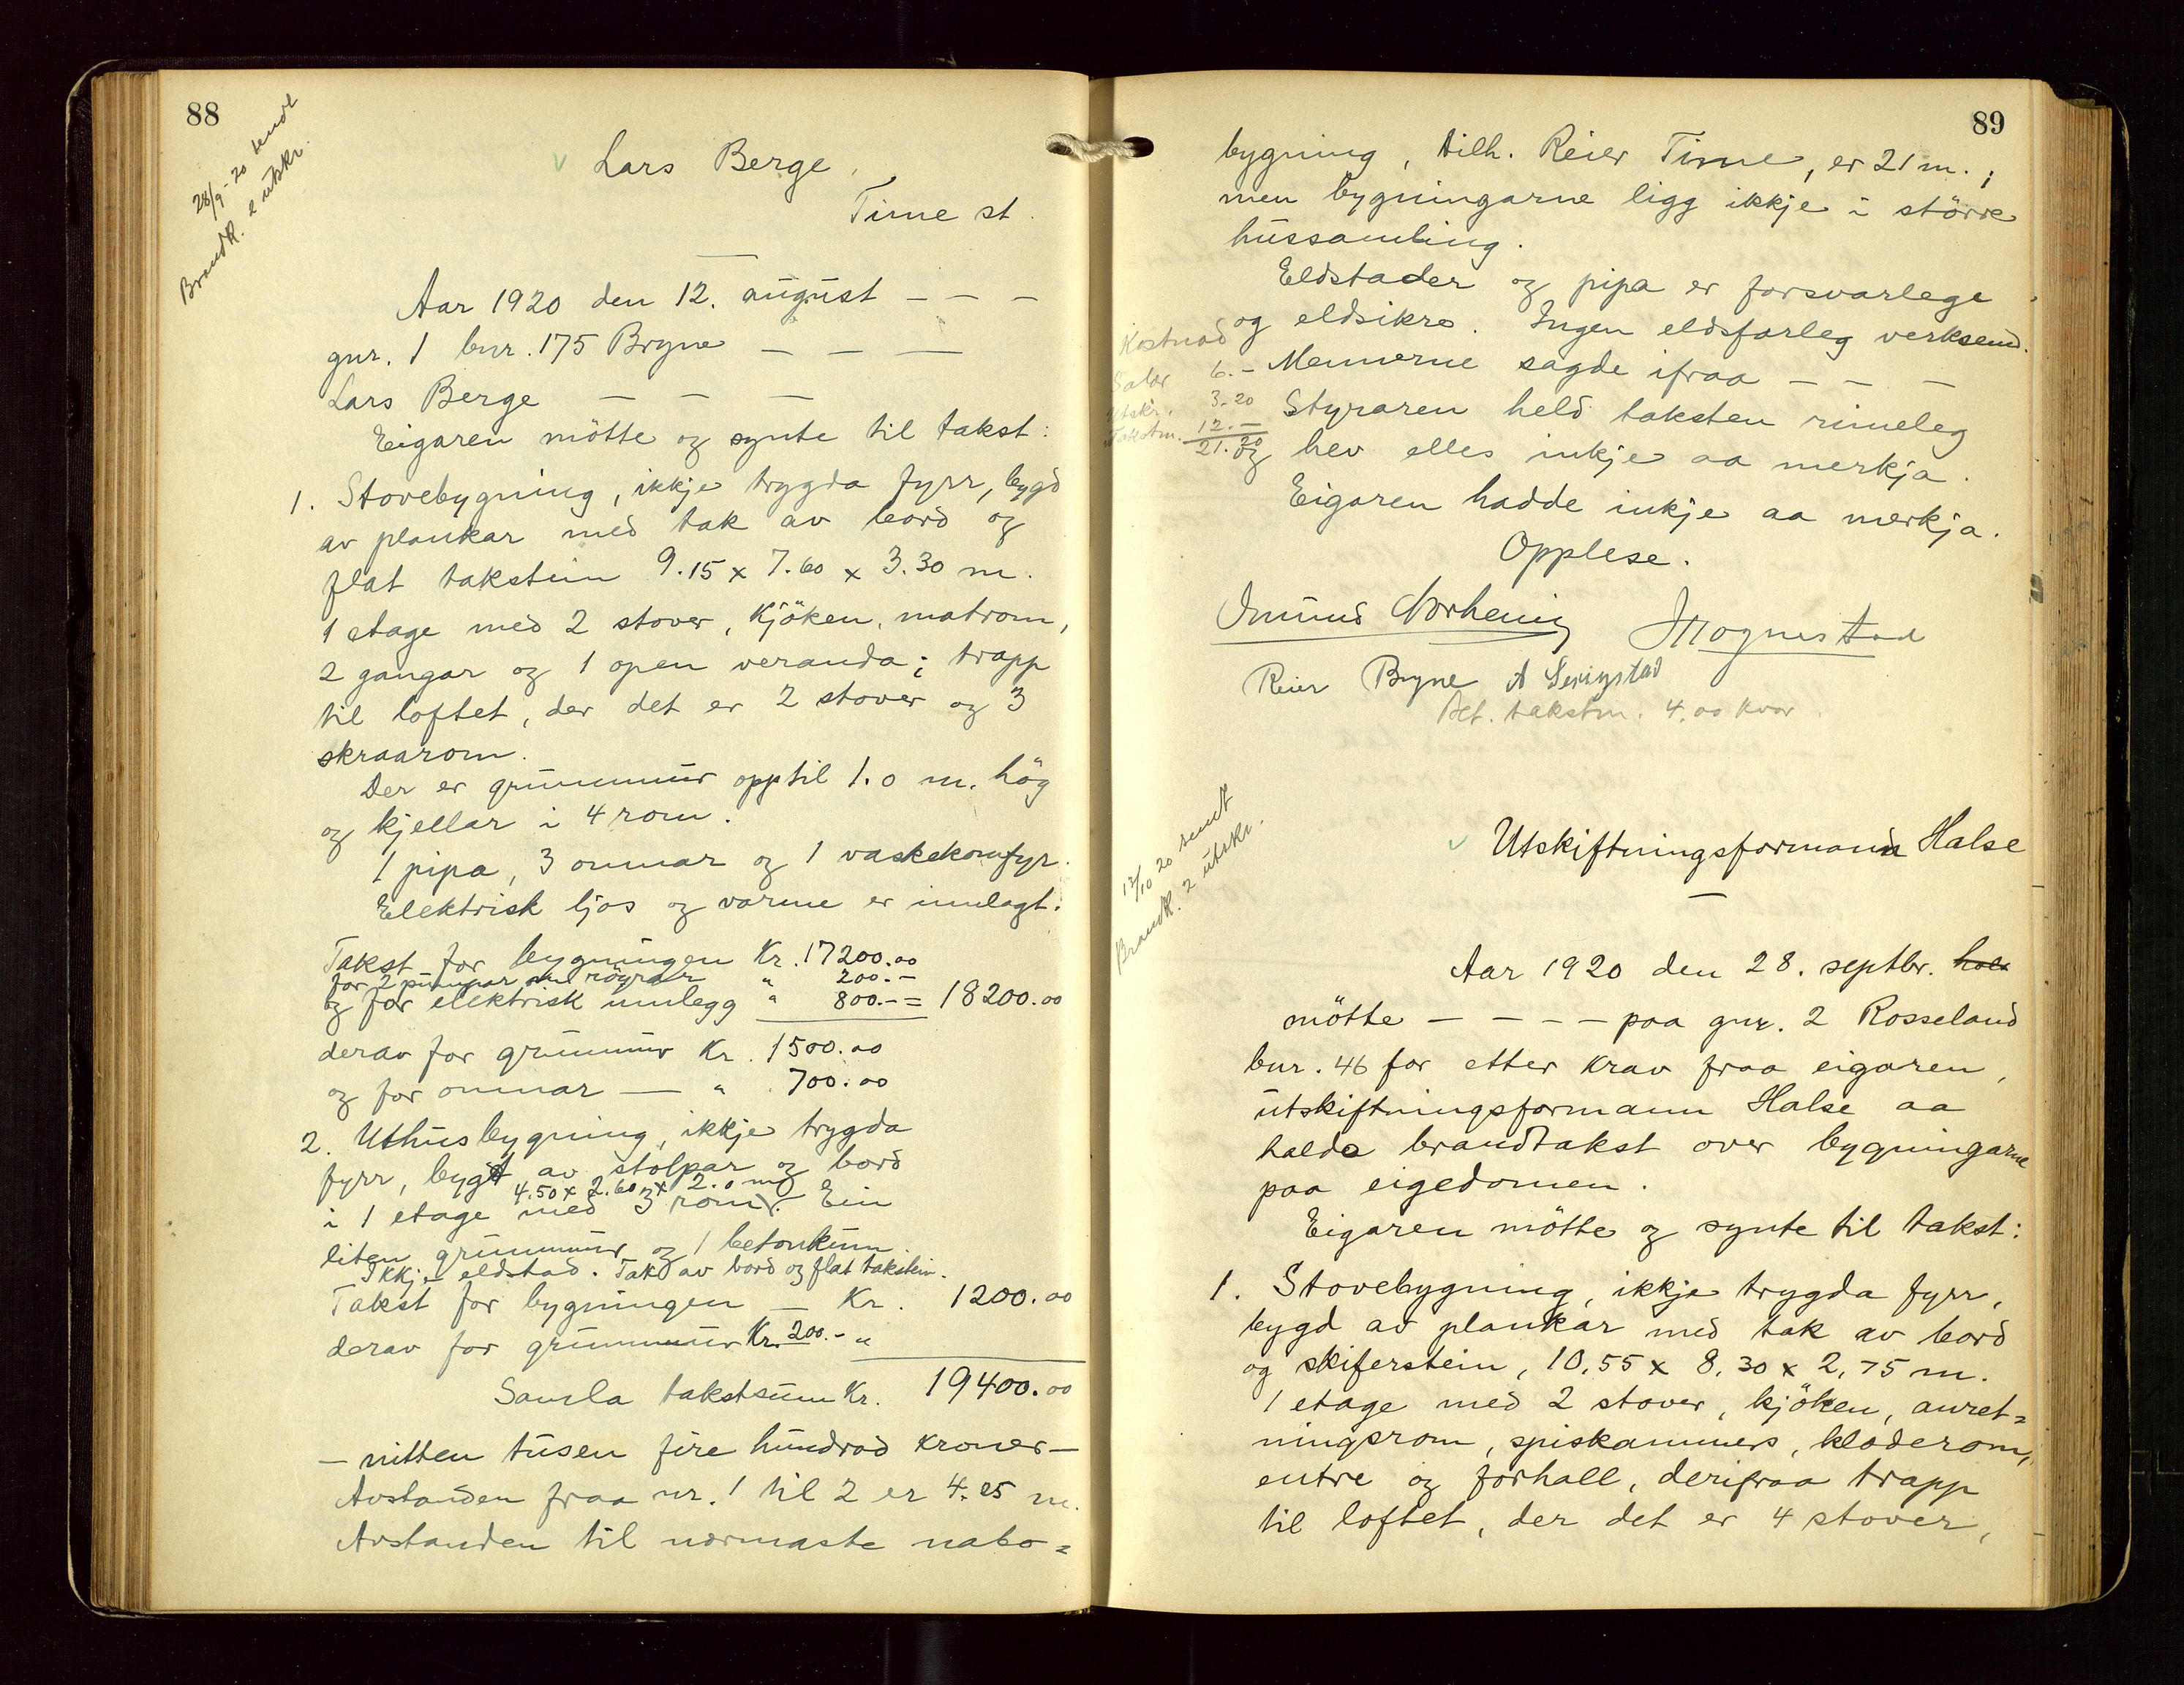 88
28/9-20 sendt
Brandk. 2 utskr.
Lars Berge,
Time st.
Aar 1920 den 12. august - - -
gnr. 1 bnr. 175 Bryne - - -
Lars Berge - - -
Eigaren mötte og synte til takst:
1. Stovebygning, ikkje trygda fyrr, bygd
av plankar med tak av bord og
flat takstein 9.15 x 7.60 x 3.30 m.
1 etage med 2 stover, kjöken, matrom,
2 gangar og 1 open veranda; trapp
til loftet, der det er 2 stover og 3
skraarom.
Der er grunnmur opptil 1.0 m. hög
og kjellar i 4 rom.
1 pipa, 3 omnar og 1 vaskekomfyr.
Elektrisk ljos og varme er innlagt.
Takst for bygningen Kr. 17200.00
for 2 pumpar med röyrar " 200.-
og for elektrisk innlegg " 800.- = 18200.00
derav for grunnmur Kr. 1500.00
og for omnar — " 700.00
2. Uthusbygning, ikkje trygda
fyrr, bygt av stolpar og bord
4.50 x 2.60 x 2.0 m
i 1 etage med 3 rom. Ein
liten grunnmur og 1 betonkum.
Ikkje eldstad. Tak av bord og flat takstein.
Takst for bygningen — Kr. 1200.00
derav for grunnmur Kr. 200.- "
Samla takstsum Kr. 19400.00
- nitten tusen fire hundrad kroner -
Avstanden fraa nr. 1 til 2 er 4.25 m.
Avstanden til nærmaste nabo=
89
bygning, tilh. Reier Time, er 21 m.;
men bygningarne ligg ikkje i större
hussamling.
Eldstader og pipa er forsvarlege
og eldsikre. Ingen eldsfarleg verksemd.
Mennerne sagde ifraa - - -
Styraren held taksten rimeleg
og hev elles inkje aa merkja.
Eigaren hadde inkje aa merkja.
Opplese.
Kostnad
Salær 6.-
Utskr. 3.20
Takstm. 12.-
21.20
Omund Norheim
Reier Bryne A Serigstad
Bet. takstm. 4.00 kvar.
12/10 20 sendt
Brandk. 2 utskr.
Utskiftningsformann Halse
Aar 1920 den 28. septbr. hol
mötte - - - - paa gnr. 2 Rosseland
bnr. 46 for etter krav fraa eigaren,
utskiftningsformann Halse aa
halda brandtakst over bygningarne
paa eigedomen.
Eigaren mötte og synte til takst:
1. Stovebygning, ikkje trygda fyrr,
bygd av plankar med tak av bord
og skiferstein, 10.55 x 8.30 x 2.75 m.
1 etage med 2 stover, kjöken, anret=
ningsrom, spiskammers, klæderom,
entre og forhall, derifraa trapp
til loftet, der det er 4 stover,